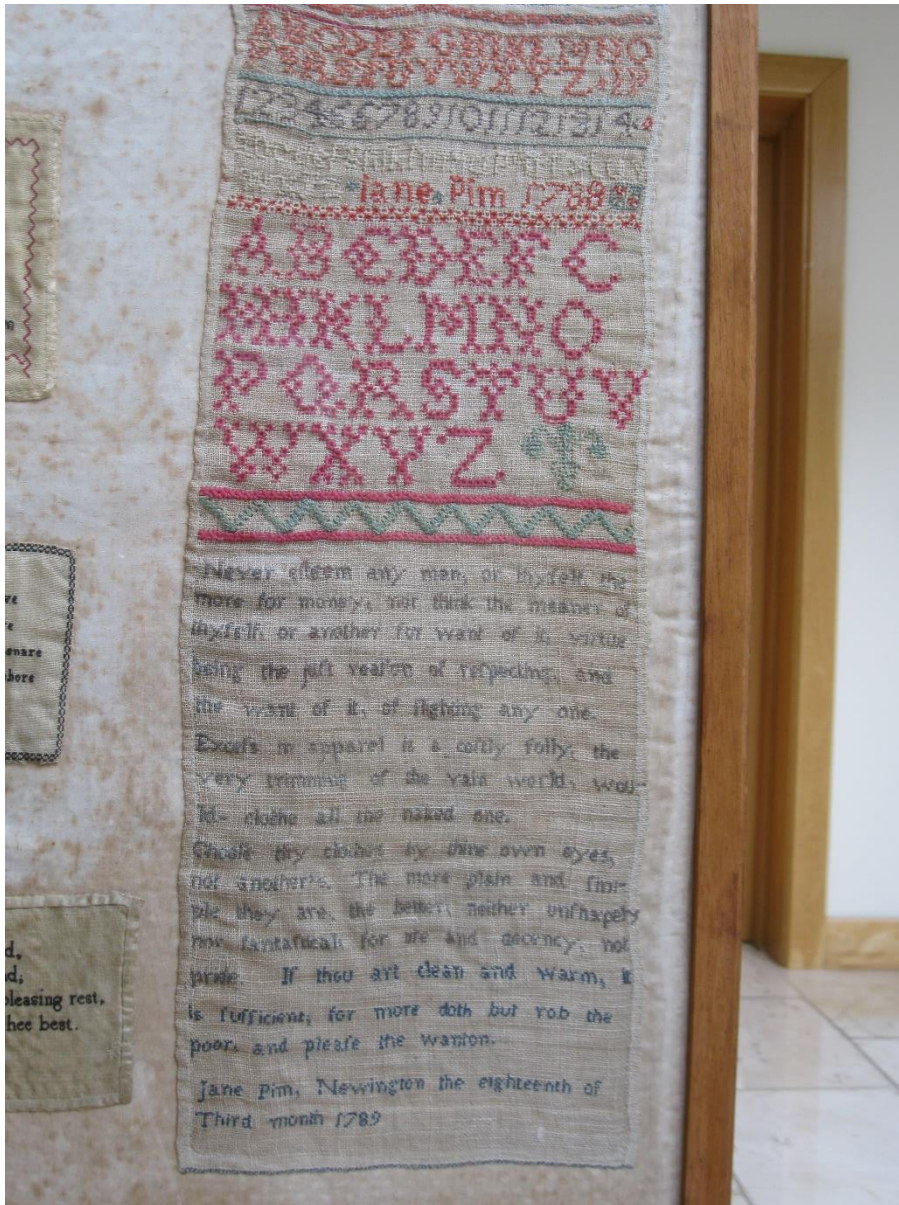 ABCDEFGHIKLMNO
PQRSTUVWXYZ
1234567891011121314
Jane Pim 1788
ABCDEFG
HIKLMNO
PQRSTUV
WXYZ
Never eſteem any man, or thyſelf, the
more for money, nor think the meaner of
thyſelf, or another for want of it, virtue
being the juſt reaſon of reſpecting, and
the want of it, of ſlighting any one.
Exceſs in apparel is a coſtly folly, the
very trimming of the vain world, wou-
ld- clothe all the naked one.
Chooſe thy clothes by thine own eyes,
not another's. The more plain and ſim-
ple they are, the better, neither unſhapely
nor fantaſtical; for uſe and decency, not
pride. If thou art clean and warm, it
is ſufficient; for more doth but rob the
poor, and pleaſe the wanton.
Jane Pim, Newington the eighteenth of
Third month 1789
pleasing rest,
hee best.